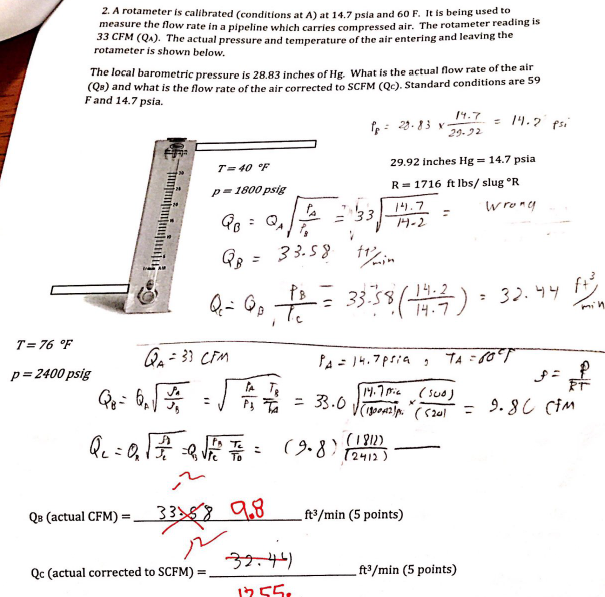 2. A rotameter is calibrated (conditions at A) at 14.7 psia and 60 F. It is being used to
measure the flow rate in a pipeline which carries compressed air. The rotameter reading is
33 CFM (QA). The actual pressure and temperature of the air entering and leaving the
rotameter is shown below.
The local barometric pressure is 28.83 inches of Hg. What is the actual flow rate of the air
(QB) and what is the flow rate of the air corrected to SCFM (QC). Standard conditions are 59
F and 14.7 psia.
= 28.83 x 14.7 / 29.92 = 14.2 psi
T = 40 °F
29.92 inches Hg = 14.7 psia
p = 1800 psig
R = 1716 ft lbs/ slug °R
QB = QA √(PA / PB) = 33 √(14.7 / 14.2) = wrong
QB = 33.58 ft³/min
Qc = QB PB / Pc = 33.58 (14.2 / 14.7) = 32.44 ft³/min
T = 76 °F
QA = 33 CFM
PA = 14.7 psia , TA = 60°F
p = 2400 psig
ρ = P / RT
QB = QA √(ρA / ρB) = √(PA / PB TB / TA) = 33.0 √(14.7 / × (500) / (520)) = 9.86 CFM
= (9.8) (1812) / (2412)
QB (actual CFM) = 33.58 9.8 ft³/min (5 points)
QC (actual corrected to SCFM) = 32.44 ft³/min (5 points)
1255.